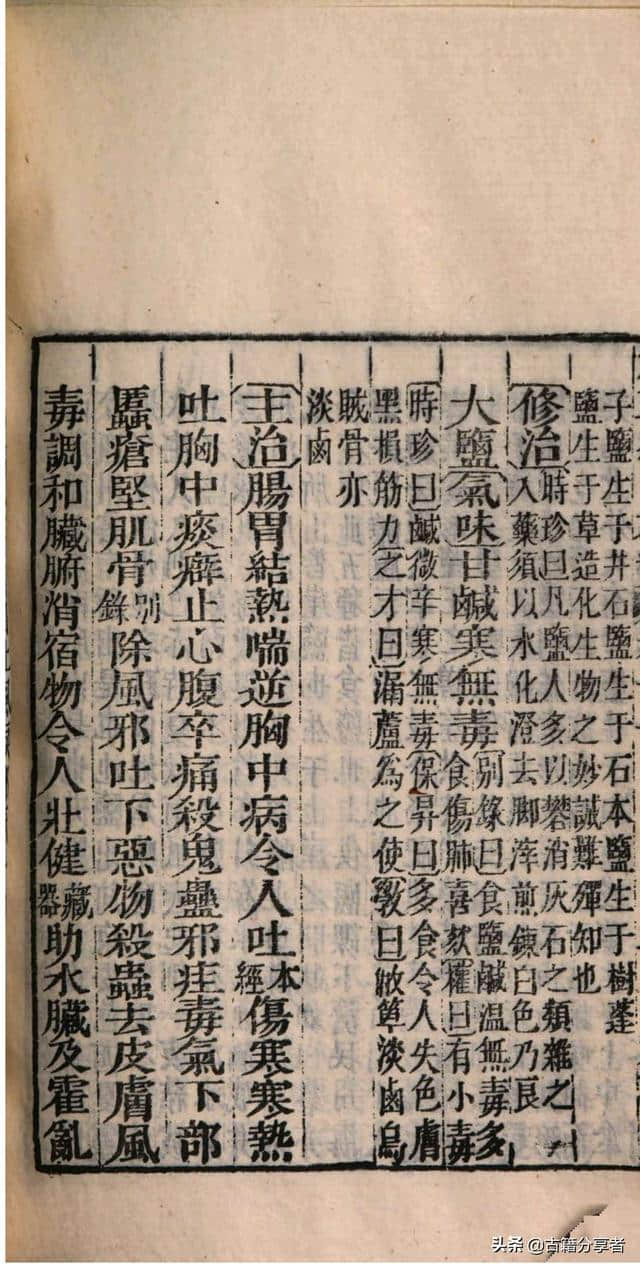 子鹽生于井石鹽生于石本鹽生于樹蓬
鹽生于草造化生物之妙誠難殫知也
修治時珍曰凡鹽人多以礬消灰石之類雜之
入藥須以水化澄去脚滓煎鍊白色乃良
大鹽氣味甘鹹寒無毒別錄曰食鹽鹹溫無毒多
食傷肺喜欬權曰有小毒
時珍曰鹹微辛寒無毒保昇曰多食令人失色膚
黑損筋力之才曰漏蘆為之使斆曰敝箄淡鹵烏
賊骨亦
淡鹵
主治腸胃結熱喘逆胸中病令人吐本經傷寒寒熱
吐胸中痰癖止心腹卒痛殺鬼蠱邪疰毒氣下部
䘌瘡堅肌骨別錄除風邪吐下惡物殺蟲去皮膚風
毒調和臟腑消宿物令人壯健藏器助水臟及霍亂
头条 @古籍分享者